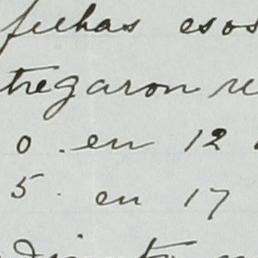 fechas esos
tregaron re
0. en 12
5. en 17